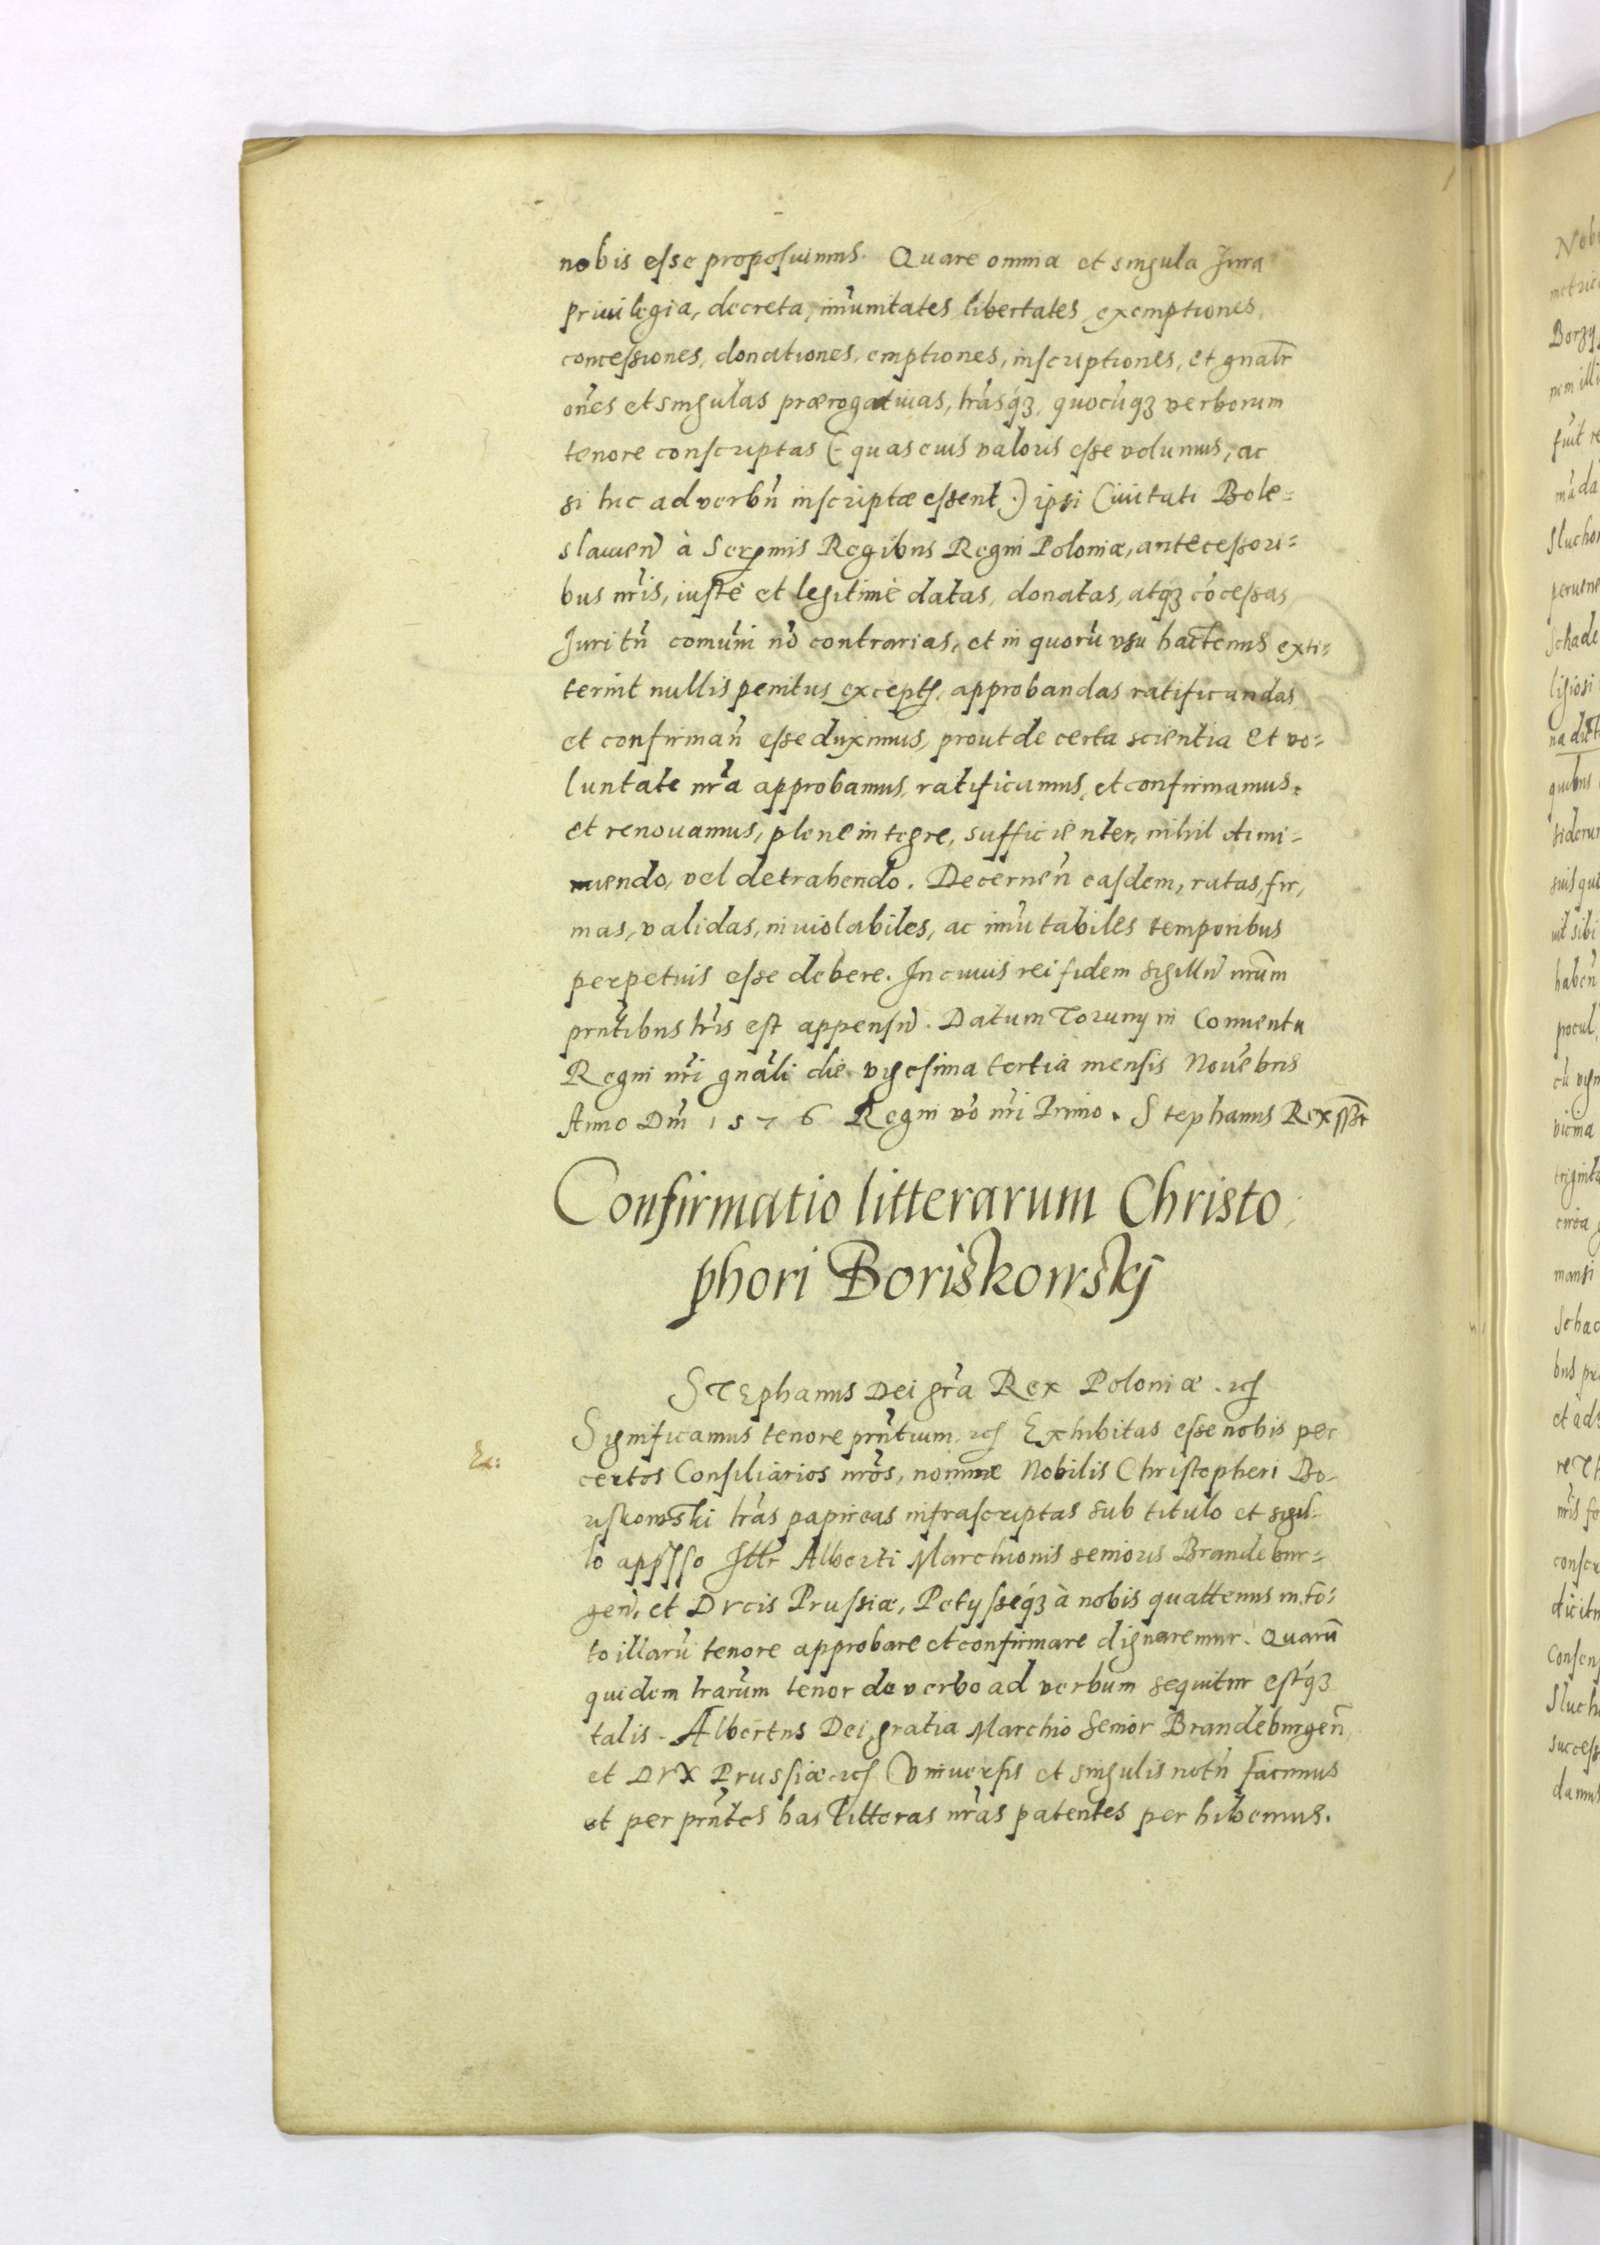 nobis esse proposuimus. Quare omnia et singula Jura
priuilegia, decreta, im̃unitates libertates exemptiones,
concessiones, donationes, emptiones, inscriptiones, et gnãlr
oñes et singulas prærogatiuas, lr̃asq́3, quocũq3 verborum
tenore conscriptas (quas eius valoris esse volumus, ac
si hic ad verbũ inscriptæ essent.) ipsi Ciuitati Bole=
slauieñ à Serẽmis Regibus Regni Poloniæ, antecessori=
bus nr̃is, iustè et legitimè datas, donatas, atq́3 cõcessas,
Juri tñ comũni nõ contrarias, et in quorũ vsu hactenus exti=
terint nullis penitus excepts, approbandas ratificandas
et confirmañ esse duximus, prout de certa scientia et vo=
luntate nr̃a approbamus, ratificamus, et confirmamus.
et renouamus, plene integre, sufficienter, nihil dimi-
nuendo, vel detrahendo. Decerneñ easdem, ratas, fir,
mas, validas, inuiolabiles, ac im̃utabiles temporibus
perpetuis esse debere. In cuius rei fidem sigillũ nr̃um
prñtibus lr̃is est appensũ. Datum Toruny in Conuentu
Regni nr̃i gnãli die vigesima tertia mensis Nouẽbris
Anno Dñi 1576 Regni võ nr̃i Primo. Stephanus Rex sst
Confirmatio litterarum Christo
phori Boriskowskj
STEphanus Dei gr̃a Rex Poloniæ. rcſ
Significamus tenore prñtium, rcſ Exhibitas esse nobis per
Ex:
certos Consiliarios nr̃os, nomine Nobilis Christopheri Bo-
riskowski lr̃as papireas infrascriptas sub titulo et sigil-
lo appsso Illr Alberti Marchionis senioris Brandebur=
geñ, et Ducis Prussiæ, Petysséq3 à nobis quattenus in to=
to illarũ tenore approbare et confirmare dignaremur. Quarũ
quidem lr̃arum tenor de verbo ad verbum sequitur estq́3
talis. Albertus Dei gratia Marchio senior Brandeburgeñ
et Dux Prussiæ rcſ Vniuersis et singulis notũ facimus
et per prñtes has litteras nr̃as patentes perhibemus.